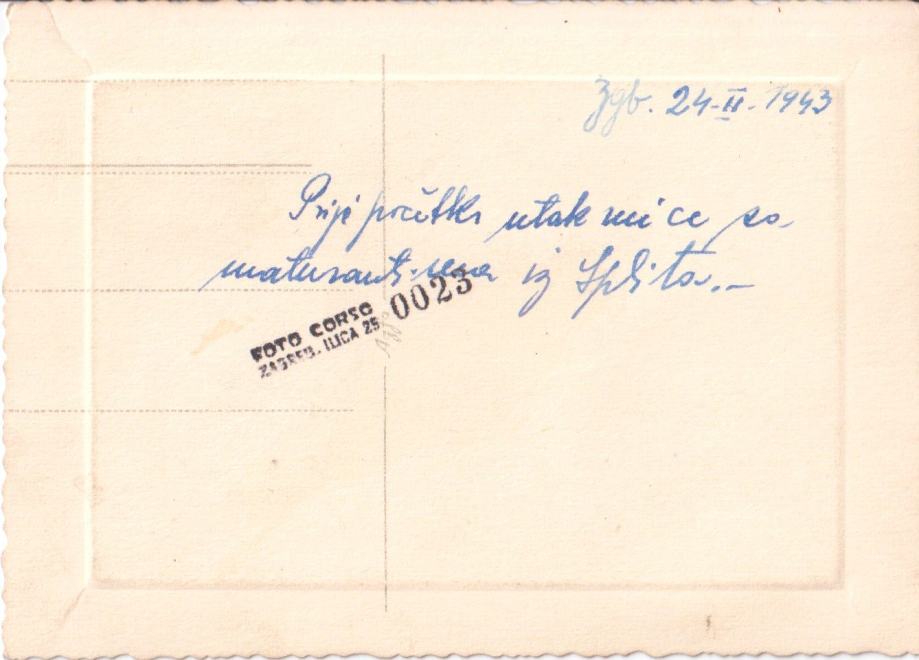 Zgb. 24-II-1943
Prije početka utakmice sa
maturantima iz Splita.-
FOTO CORSO
ZAGREB. ILICA 25
0023